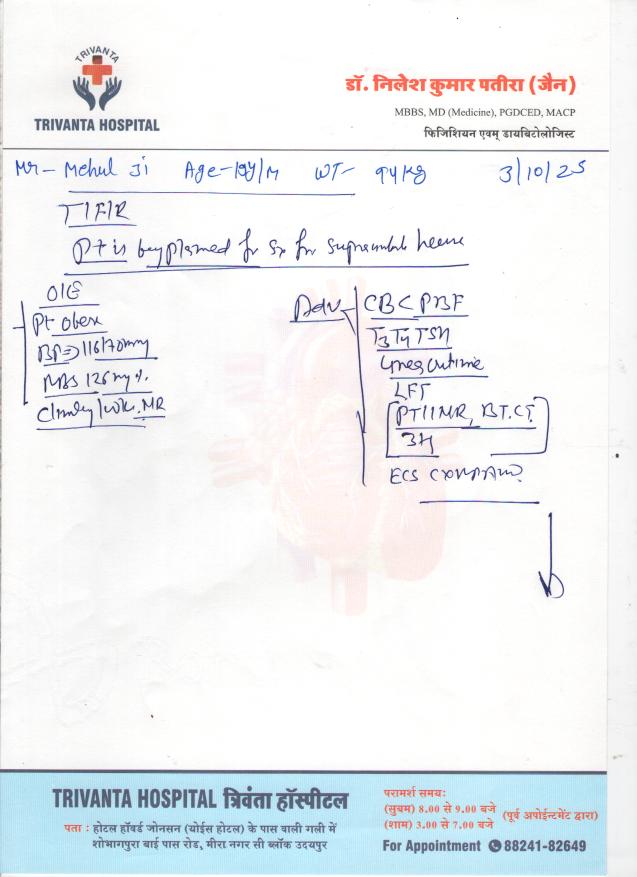 TRIVANTA
TRIVANTA HOSPITAL
डॉ. निलेश कुमार पतीरा (जैन)
MBBS, MD (Medicine), PGDCED, MACP
फिजिशियन एवम् डायबिटोलोजिस्ट
Mr - Mehul Ji Age - 19Y/M WT - 94 Kg 3/10/25
Pt is being planned for Sx for
O/E
Pt obese
BP 116/70 mm
RBS 126 mg%
Adv
CBC PBF
T3 T4 TSH
LFT
PT INR, BT, CT
TRIVANTA HOSPITAL त्रिवंता हॉस्पीटल
पता : होटल हॉवर्ड जोनसन (योईस होटल) के पास वाली गली में
शोभागपुरा बाई पास रोड, मीरा नगर सी ब्लॉक उदयपुर
परामर्श समय:
(सुबम) 8.00 से 9.00 बजे
(शाम) 3.00 से 7.00 बजे
(पूर्व अपोईन्टमेंट द्वारा)
For Appointment 88241-82649